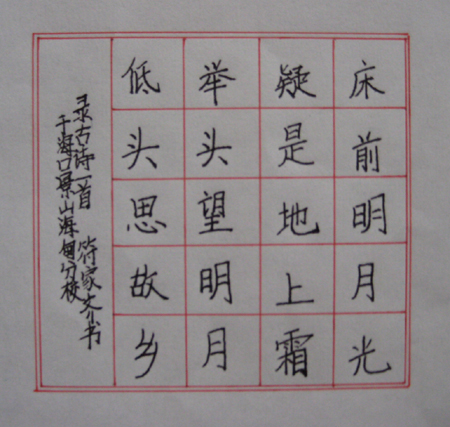 床前明月光
疑是地上霜
举头望明月
低头思故乡
录古诗一首 符家齐书
于海口景山海甸分校